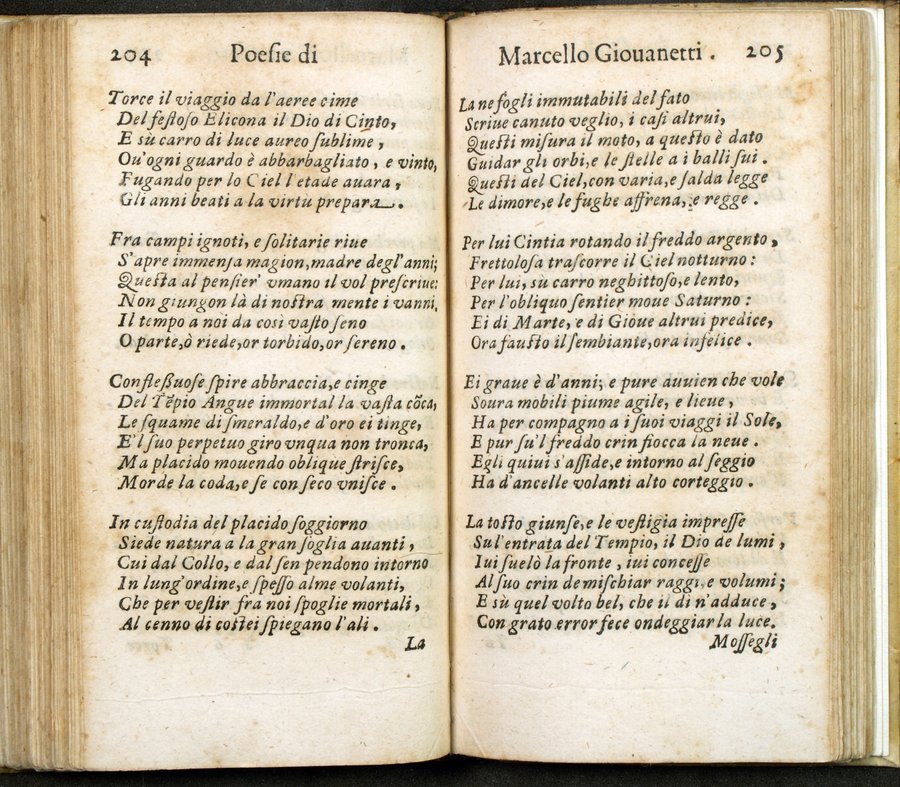 204 Poesie di
Torce il viaggio da l'aeree cime
Del festoso Elicona il Dio di Cinto,
E sù carro di luce aureo sublime,
Ou'ogni guardo è abbarbagliato, e vinto,
Fugando per lo Ciel l'etade auara,
Gli anni beati a la virtu prepara.
Fra campi ignoti, e solitarie riue
S'apre immensa magion, madre degl'anni;
Questa al pensier' vmano il vol prescriue:
Non giungon là di nostra mente i vanni,
Il tempo a noi da così vasto seno
O parte, ò riede, or torbido, or sereno.
Conflessuose spire abbraccia, e cinge
Del Tẽpio Angue immortal la vasta cõca,
Le squame di smeraldo, e d'oro ei tinge,
E'l suo perpetuo giro vnqua non tronca,
Ma placido mouendo oblique strisce,
Morde la coda, e se con seco vnisce.
In custodia del placido soggiorno
Siede natura a la gran soglia auanti,
Cui dal Collo, e dal sen pendono intorno
In lung'ordine, e spesso alme volanti,
Che per vestir fra noi spoglie mortali,
Al cenno di costei spiegano l'ali.
La
Marcello Giouanetti. 205
La ne fogli immutabili del fato
Scriue canuto veglio, i casi altrui,
Questi misura il moto, a questo è dato
Guidar gli orbi, e le stelle a i balli sui.
Questi del Ciel, con varia, e salda legge
Le dimore, e le fughe affrena, e regge.
Per lui Cintia rotando il freddo argento,
Frettolosa trascorre il Ciel notturno:
Per lui, su carro neghittoso, e lento,
Per l'obliquo sentier moue Saturno:
Ei di Marte, e di Gioue altrui predice,
Ora fausto il sembiante, ora infelice.
Ei graue è d'anni; e pure auuien che vole
Soura mobili piume agile, e lieue,
Ha per compagno a i suoi viaggi il Sole,
E pur su'l freddo crin fiocca la neue.
Egli quiui s'asside, e intorno al seggio
Ha d'ancelle volanti alto corteggio.
La tosto giunse, e le vestigia impresse
Sul'entrata del Tempio, il Dio de lumi,
Iui suelò la fronte, iui concesse
Al suo crin de mischiar raggi, e volumi;
E sù quel volto bel, che il di n'adduce,
Con grato error fece ondeggiar la luce.
Mossegli